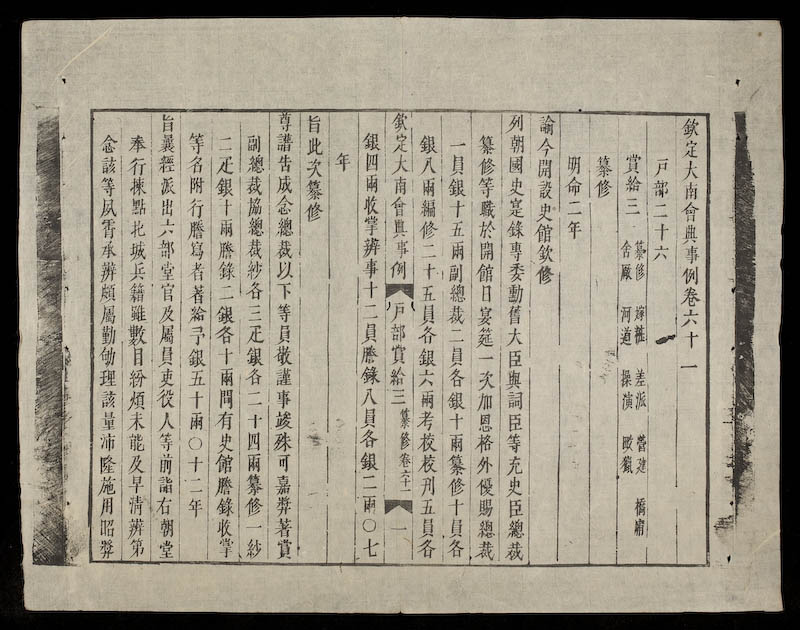 欽定大南會典事例卷六十一
戶部二十六
賞給三 纂修 嫁粧 差派 營建 橋廟 舍廠 河道 操演 畋獵
纂修
明命二年
諭今開設史館欽修
列朝國史寔錄專委勳舊大臣與詞臣等充史臣總裁
纂修等職於開館日宴筵一次加恩格外優賜總裁
一員銀十五兩副總裁二員各銀十兩纂修十員各
銀八兩編修二十五員各銀六兩考校校刊五員各
欽定大南會典事例 戶部賞給三 纂修 卷六十一 一
銀四兩收掌辨事十二員謄錄八員各銀二兩〇七
年
旨此次纂修
尊譜告成念總裁以下等員敬謹事竣殊可嘉奬著賞
副總裁協總裁紗各三疋銀各二十四兩纂修一紗
二疋銀十兩謄錄二銀各十兩間有史館謄錄收掌
等名附行謄寫者著給予銀五十兩〇十二年
旨曩經派出六部堂官及屬員吏役人等前詣右朝堂
奉行揀點北城兵籍雖數目紛煩未能及早清辨第
念該等夙霄承辨頗屬勤劬理該量沛隆施用昭奬